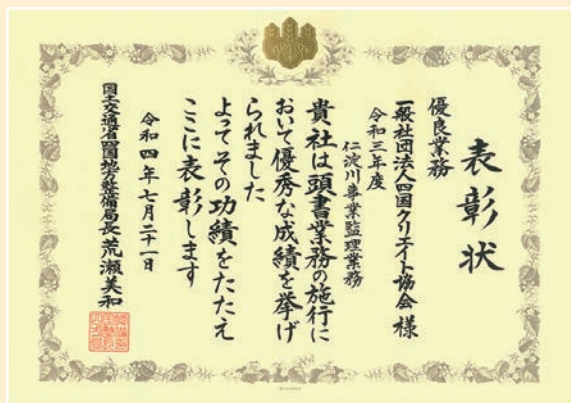 表彰状
優良業務
一般社団法人四国クリエイト協会 様
令和三年度
仁淀川事業監理業務
貴社は頭書業務の施行に
おいて優秀な成績を挙げ
られました
よってその功績をたたえ
ここに表彰します
令和四年七月二十一日
国土交通省四国地方整備局長 荒瀬美和